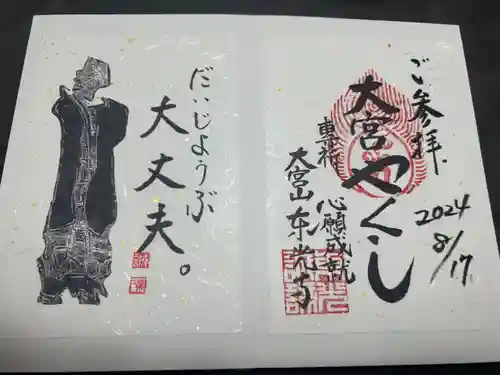 ご参拝
2024
8/17
大宮やくし
専祈
心願成就
大宮山東光寺
だいじょうぶ
大丈夫。